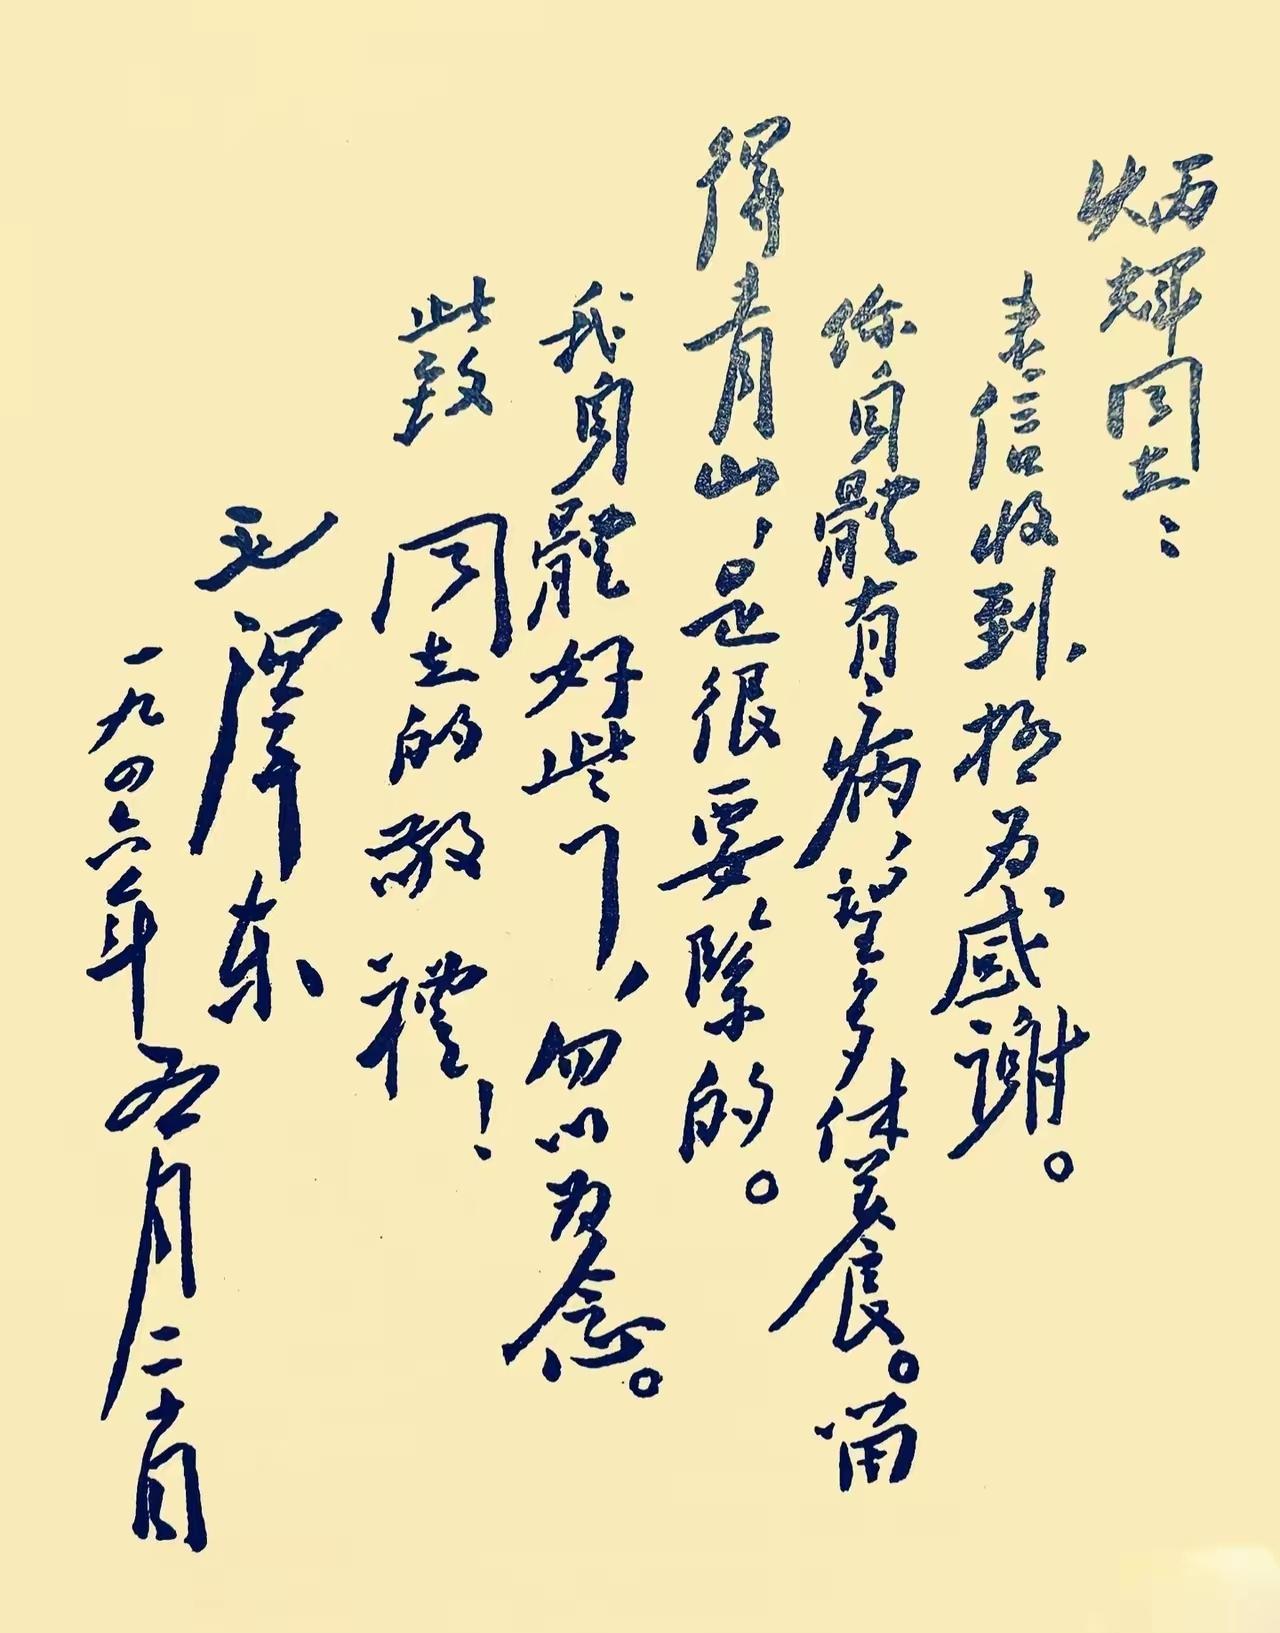 炳輝同志：
来信收到，极为感谢。
你身體有病，望多休养。留
得青山，是很要緊的。
我身體好些了，勿以为念。
此致
同志的敬禮！
毛泽东
一九四六年五月二十日